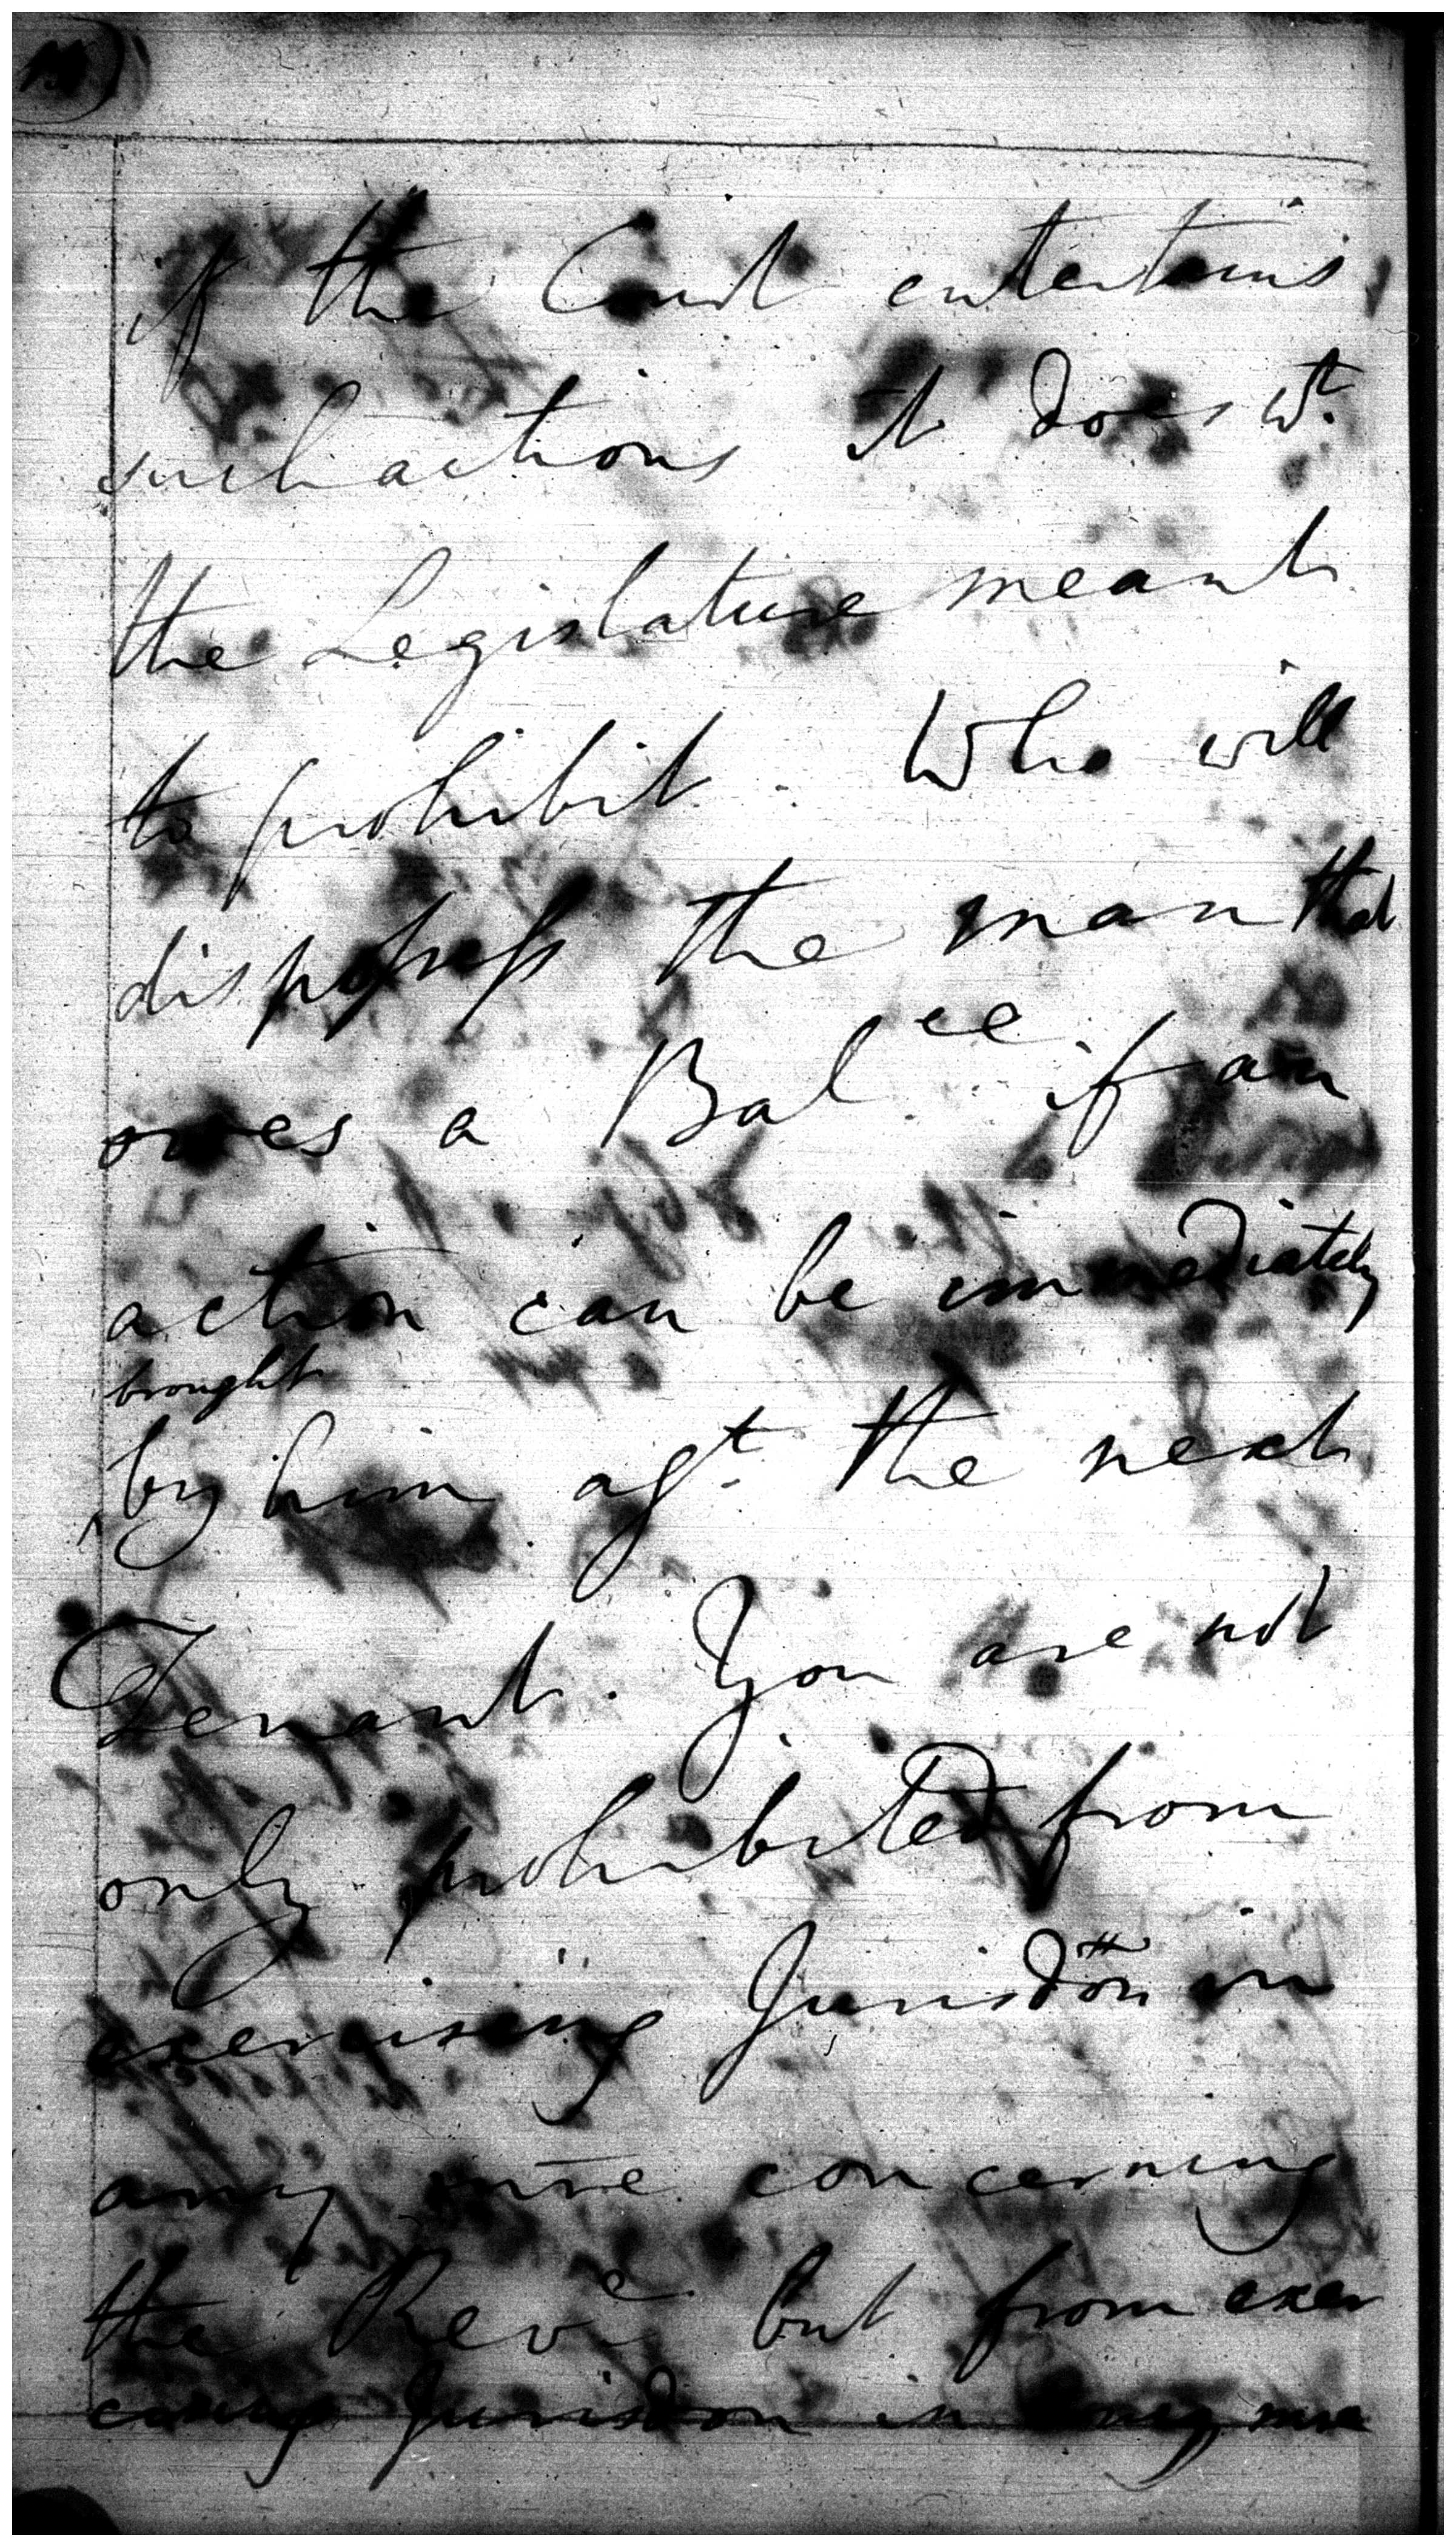 if the Court entertains
such actions it does wt.
the Legislature meant
to prohibit. Who will
dispossess the man that
owes a Balce. if an
action can be immediately
brought
by him agt. the next
Tenant. You are not
only prohibited from
exercising Jurisdon in
any mre concerning
the Reve but from exer
cising Jurisdon in any mre